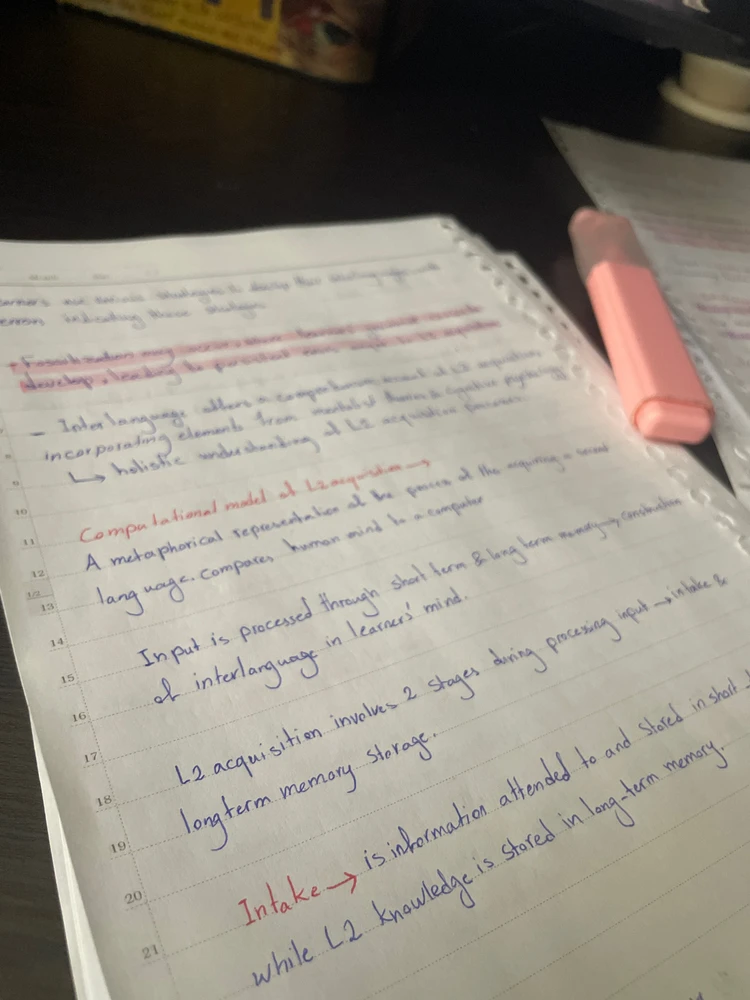 errors indicating these strategies
- Fossilization may occur, when learners
develop, leading to persistent errors
- Interlanguage offers a comprehensive account of L2 acquisition
incorporating elements from mentalist theories & cognitive psychology
↳ holistic understanding of L2 acquisition processes.
Computational model of L2 acquisition →
A metaphorical representation of the process of the acquiring a second
language. Compares human mind to a computer
Input is processed through short term & long term memory → construction
of interlanguage in learners' mind.
L2 acquisition involves 2 stages during processing input → intake &
longterm memory storage.
Intake → is information attended to and stored in short
while L2 knowledge is stored in long-term memory.
10
11
12
13
14
15
16
17
18
19
20
21